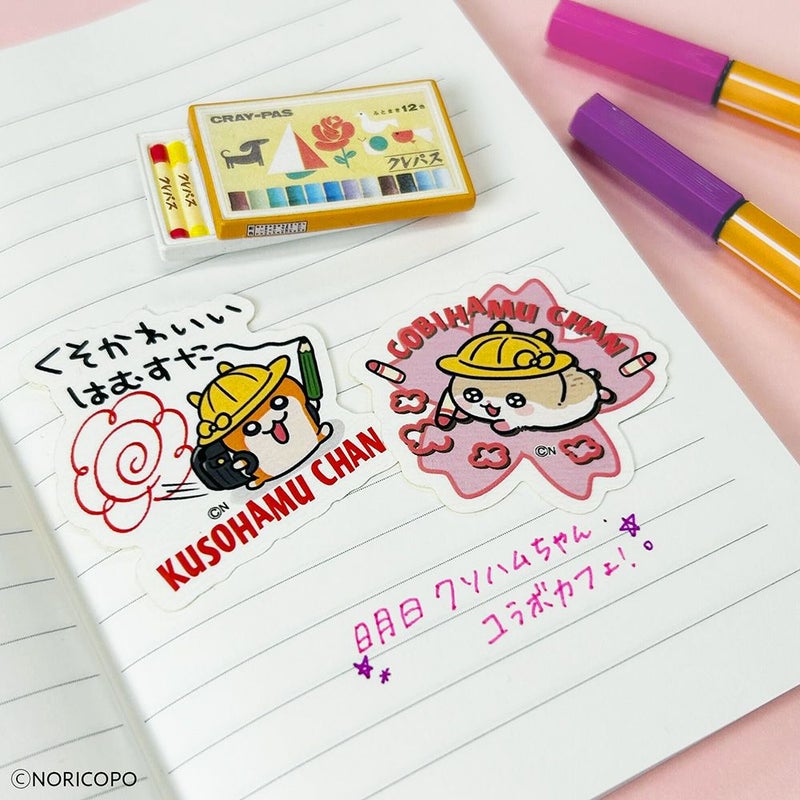 CRAY-PAS
ふとまき12色
クレパス
クレパス
クレパス
くそかわいい
はむすたー
©N
KUSOHAMU CHAN
COBIHAMU CHAN
©N
明日クソハムちゃん
コラボカフェ!
©NORICOPO